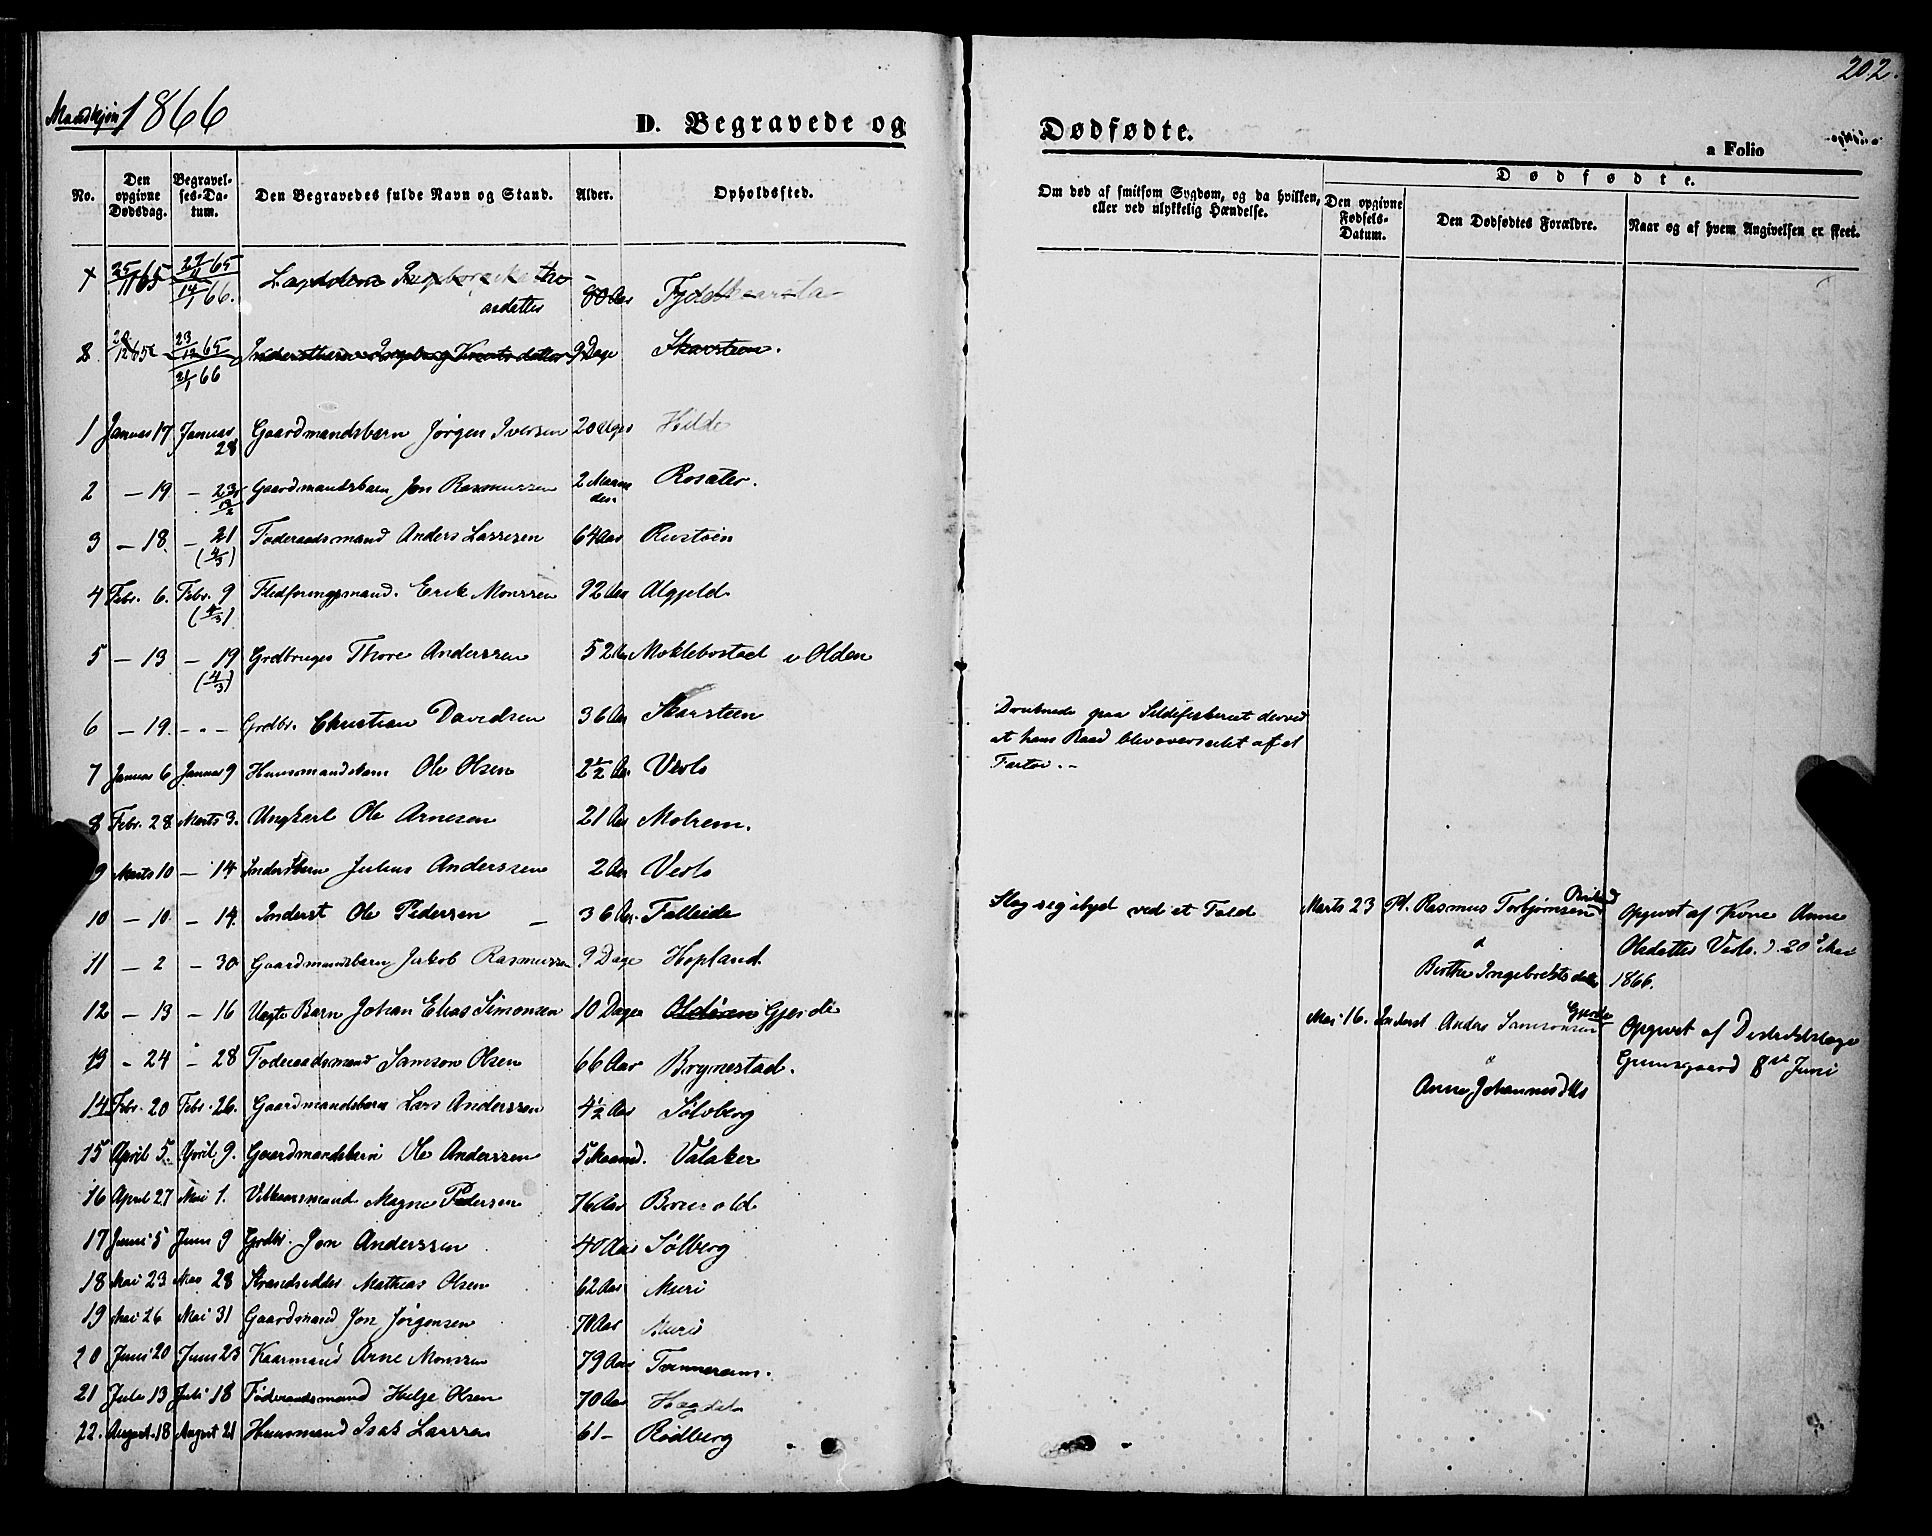 Mandkjøn 1866
202.
D. Begravede og Dødfødte.
a Folio
No.
Den opgivne Dødsdag.
Begravelses-Datum.
Den Begravedes fulde Navn og Stand.
Alder.
Opholdssted.
Om død af smitsom Sygdom, og da hvilken, eller ved ulykkelig Hændelse.
Dødfødte.
Den opgivne Fødsels-Datum.
Den Dødfødtes Forældre.
Naar og af hvem Angivelsen er skeet.
25/11 65 27/11 65 14/1 66. 80 Aar
2 20/12 65 23/12 65 21/1 66 Ingeborg Knutsdatter 9 Dage Skarsteen.
1 Januar 17 Januar 28 Gaardmandsbarn Jørgen Iversen 20 Uger Hilde
2 - 19 - 23/2 Gaardmandsbarn Jon Rasmussen 2 Maaneder
3 - 18. - 21 (4/3) Føderaadsmand Anders Larssen 64 Aar Rustøen
4 Febr. 6. Febr. 9 (4/3) Fledføringsmand. Erik Monssen 92 Aar Algjeld
5 - 13 - 19 (4/3) Grdbruger Thore Anderssen 52 Aar Moklebostad i Olden
6 - 19. - " - Grdbr. Christian Davidsen 36 Aar Skarsteen
Druknede paa Sildefiskeriet derved
at hans Baad blev overseilet af et
Fartøi. -
7 Januar 6 Januar 9 Huusmandsbarn Ole Olsen 2 1/2 Aar Visls
8 Febr. 28 Marts 3. Ungkarl Ole Arnesen 21 Aar Melrem.
9 Marts 10 - 14 Inderstbarn Julius Anderssen 2 Aar
10 - 10. - 14. Inderst Ole Pedersen - 36 Aar. Falleide
Slog sig ihjel ved et Fald
Marts 23 Pl. Rasmus Torbjørnsen
&
Berthe Ingebretsdatter
Opgivet af Kone Anne
Olsdatter d. 20de Mai
1866.
11 - 2 - 30 Gaardmandsbarn Jakob Rasmussen 9 Dage Hopland
12 - 13 - 16 Uægte Barn Johan Elias Simonsen 10 Dage Oldøren Gjerde
Mai 16. Inderst Anders Samsonsen Gjerde
&
Anne Johannesdtr
Opgivet af Distriktslæge
Grimsgaard 8de Juni
13 - 24 - 28 Føderaadsmand Samson Olsen 66 Aar Brynestad.
14 Febr. 20 Febr. 26. Gaardmandsbarn Lars Anderssen 4 1/2 Aar Sølvberg
15 April 5. April 9. Gaardmandsbarn Ole Anderssen 5 Maand. Valaker
16 April 27 Mai 1. Vilkaarsmand Magne Pedersen 76 Aar
17 Juni 5 Juni 9 Grdbr. Jon Anderssen 40 Aar Sølberg
18 Mai 23 Mai 28 Strandsidder Mathias Olsen 62 Aar Muri
19 Mai 26 Mai 31 Gaardmand Jon Jørgensen 70 Aar Muri
20 Juni 20 Juni 23 Kaarmand Arne Monssen 79 Aar
21 Juli 13 Juli 18 Føderaadsmand Helge Olsen 70 Aar
22. August 18 August 21 Huusmand Isak Larssen 61 - Rødberg